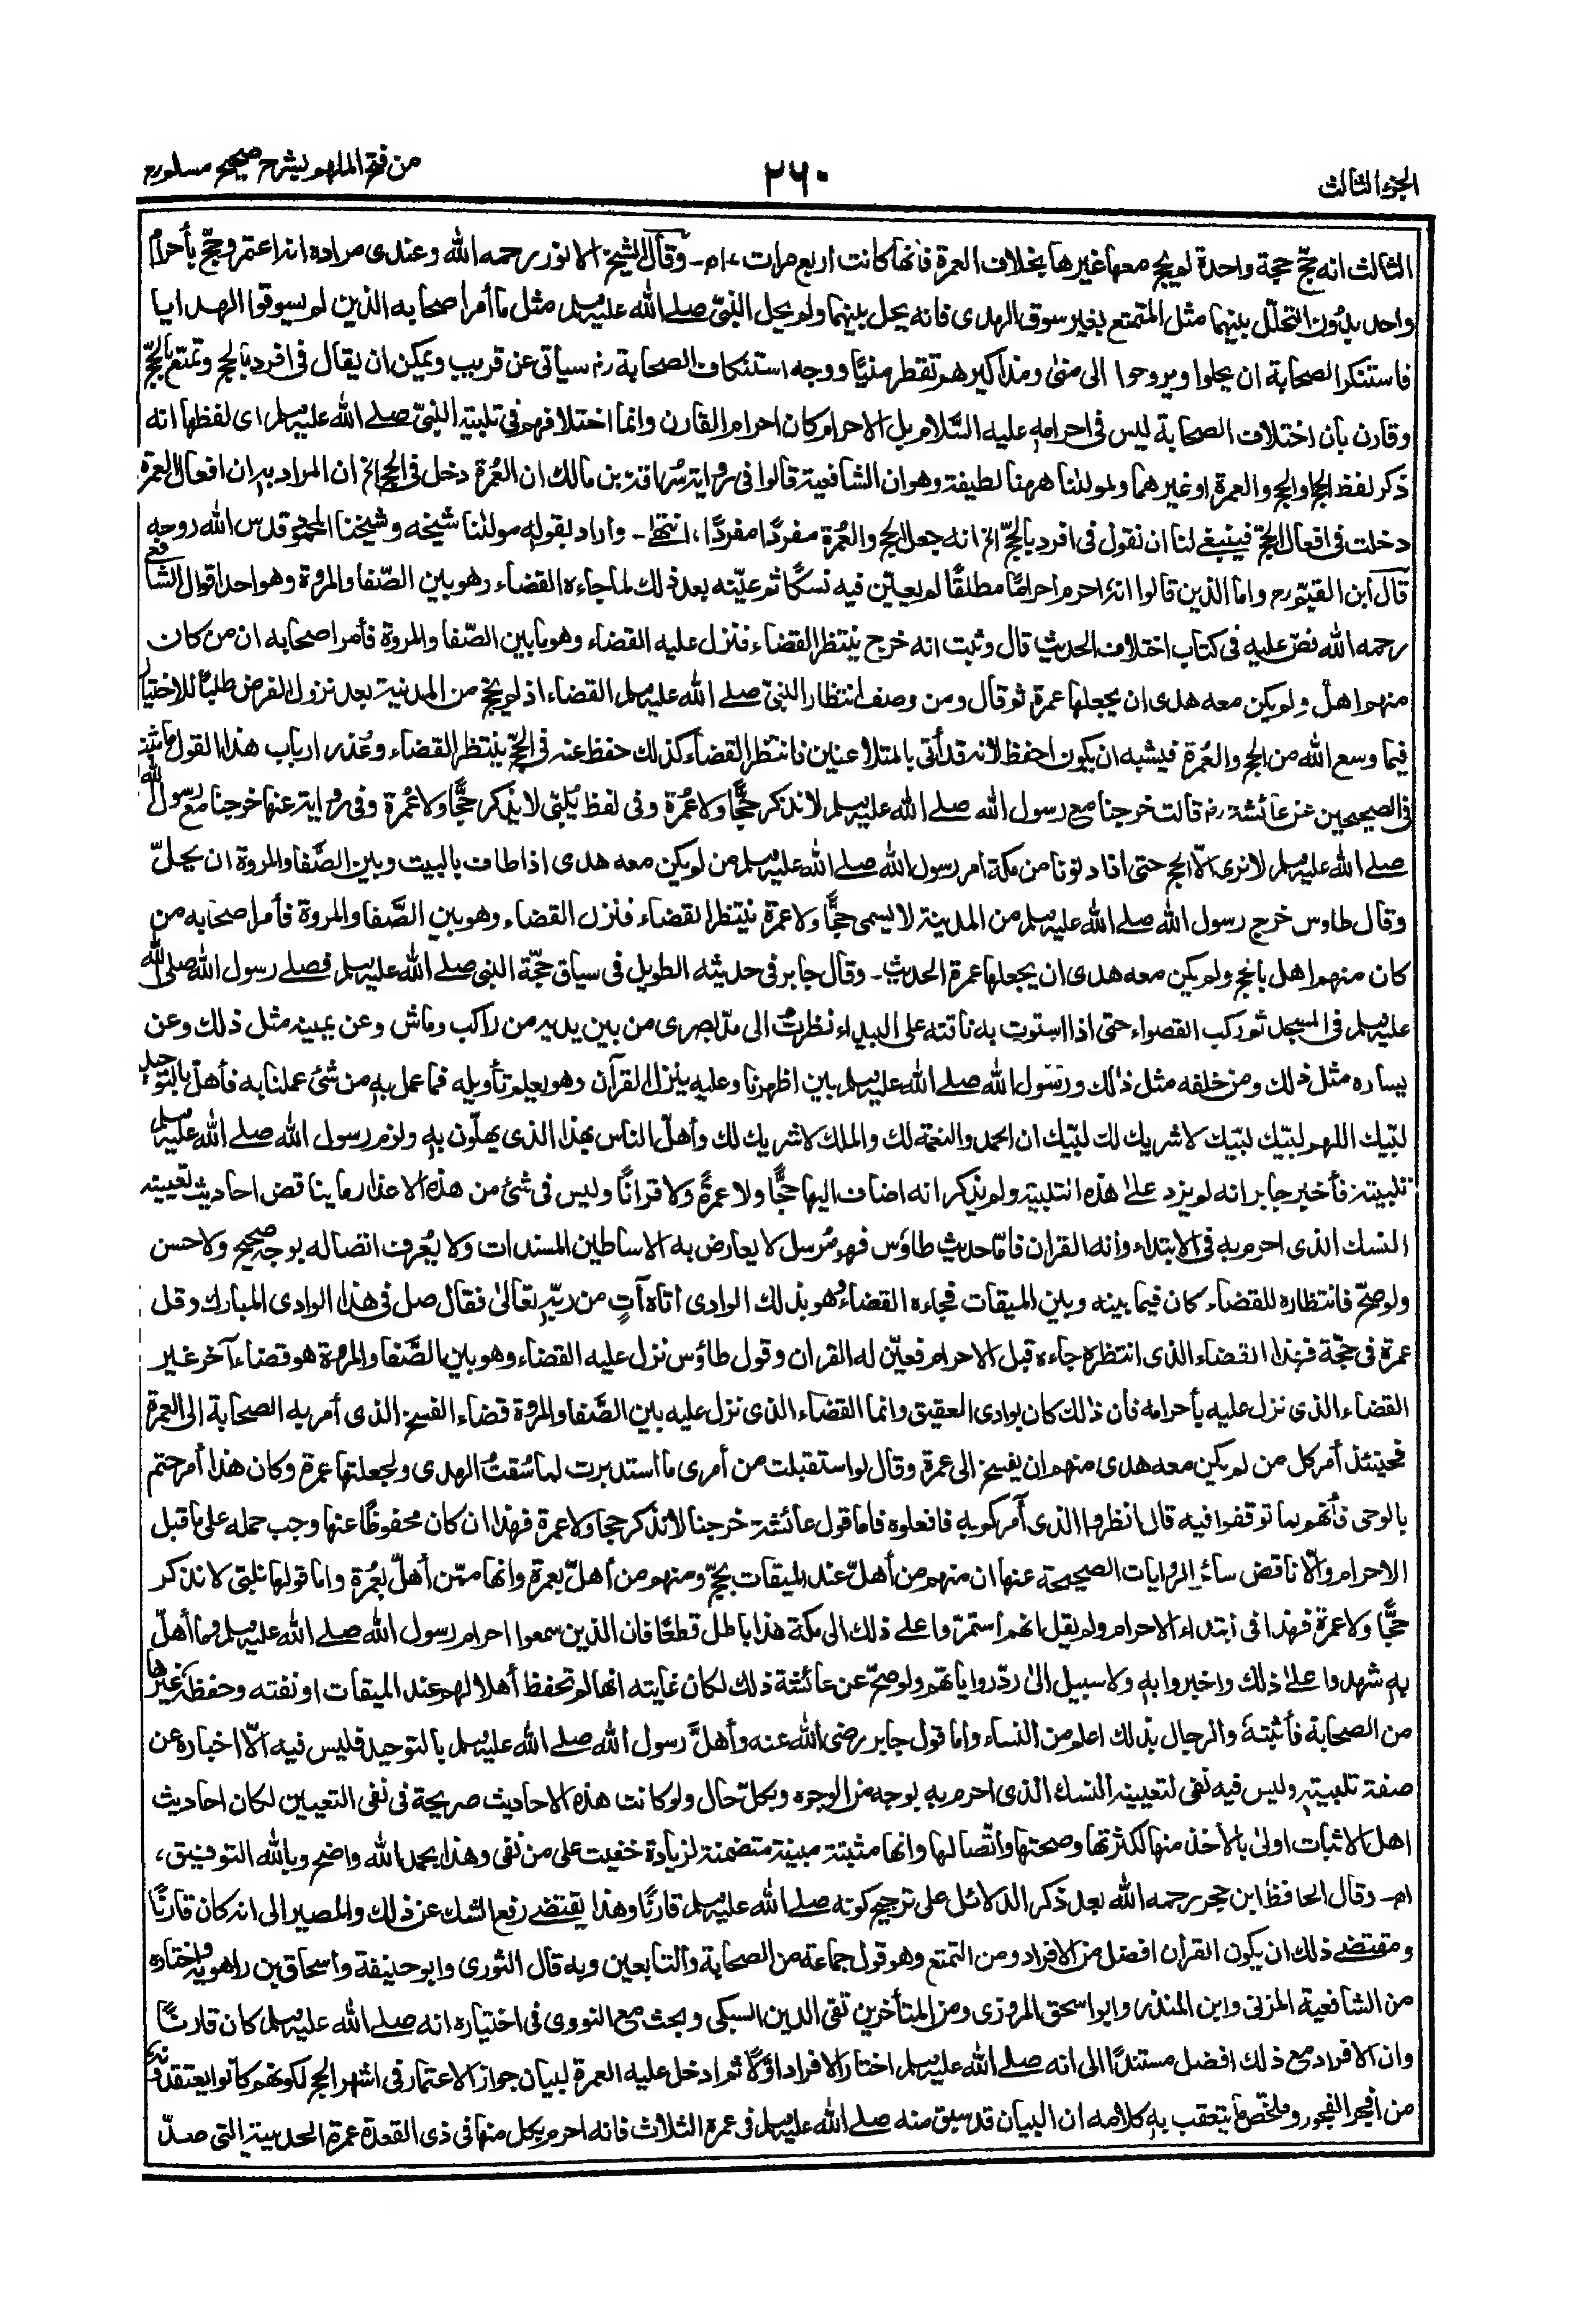 الجزء الثالث
٢٦٠
من فتح الملهم بشرح صحيح مسلم رح
الثالث انه حج حجة واحدة لم يحج معها غيرها بخلاف العمرة فانها كانت اربع مرات ، اھ ـ وقال الشيخ الانور رحمه الله وعندى مراده انه اعتمر وحج بأحرام
واحد بدون التحلل بينهما مثل المتمتع بغير سوق الهدى فانه يحل بينهما ولم يحل النبي صلے الله عليه وسلم مثل ما أمر اصحابه الذين لم يسوقوا الهدايا
فاستنكر الصحابة ان يحلوا ويروحوا الى منى ومذاكيرهم تقطر منيًا ووجه استنكاف الصحابة رض سيأتى عن قريب ويمكن ان يقال فى افرد بالحج وتمتع بالحجّ
وقارن بأن اختلاف الصحابة ليس فى احرامه عليه السَّلام بل الاحرام كان احرام القارن وانما اختلافهم فى تلبية النبيّ صلے الله عليه وسلم اى لفظها انه
ذكر لفظ الحج او الحج والعمرة او غيرهما ولمولٰنا هٰهنا لطيفة وهو ان الشافعية قالوا فى رواية سُراقة بن مالك ان العُمرة دخل فى الحج الخ ان المراد به ان افعال العمرة
دخلت فى افعال الحجّ فينبغى لنا ان نقول فى افرد بالحجّ الخ انه جعل الحج والعُمرة مفردًا مفردًا ، انتهٰى ـ واراد بقوله مولٰنا شيخه وشيخنا المحمود قدس الله روحه
قال ابن القيّم رح واما الذين قالوا انه احرم احرامًا مطلقًا لم يعيّن فيه نسكًا ثم عيّنه بعد ذلك لما جاءه القضاء وهو بين الصّفا والمروة وهو احد اقوال الشافعى
رحمه الله نصّ عليه فى كتاب اختلاف الحديث قال وثبت انه خرج ينتظر القضاء فنزل عليه القضاء وهو ما بين الصّفا والمروة فأمر اصحابه ان من كان
منهم اهل ولم يكن معه هدى ان يجعلها عمرة ثم قال ومن وصف انتظار النبيّ صلے الله عليه وسلم القضاء اذ لم يحج من المدينة بعد نزول الفرض طلبًا للاختيار
فيما وسع الله من الحج والعُمرة فيشبه ان يكون احفظ لانه قد أتى بالمتلاعنين فانتظر القضاء كذلك حفظ عنه فى الحجّ ينتظر القضاء وعُذر ارباب هذا القول ما ثبت
فى الصحيحين عن عائشة رض قالت خرجنا مع رسول الله صلے الله عليه وسلم لا نذكر حجًّا ولا عُمرة وفى لفظ يُلبّى لا يذكر حجًّا ولا عُمرة وفى رواية عنها خرجنا مع رسول الله
صلے الله عليه وسلم لا نرى الّا الحج حتى اذا دنونا من مكة امر رسول الله صلے الله عليه وسلم من لم يكن معه هدى اذا طاف بالبيت وبين الصَّفا والمروة ان يحلّ
وقال طاوس خرج رسول الله صلے الله عليه وسلم من المدينة لا يسمى حجًّا ولا عمرة ينتظر القضاء فنزل القضاء وهو بين الصَّفا والمروة فأمر اصحابه من
كان منهم اهل بالحج ولم يكن معه هدى ان يجعلها عمرة الحديث ـ وقال جابر فى حديثه الطويل فى سياق حجّة النبى صلے الله عليه وسلم فصلے رسول الله صلى الله
عليه وسلم فى المسجد ثم ركب القصواء حتى اذا استوت به ناقته على البيداء نظرتُ الى مدّ بصرى من بين يديه من راكب وماش وعن يمينه مثل ذلك وعن
يساره مثل ذلك ومن خلفه مثل ذٰلك ورسول الله صلے الله عليه وسلم بين اظهرنا وعليه ينزل القرآن وهو يعلم تأويله فما عمل به من شئ عملنا به فأهلّ بالتوحيد
لبّيك اللهم لبّيك لبّيك لا شريك لك لبّيك ان الحمد والنعمة لك والملك لا شريك لك وأهلّ الناس بهذا الذى يهلّون به ولزم رسول الله صلے الله عليه وسلم
تلبيته فأخبر جابر انه لم يزد علىٰ هذه التلبية ولم يذكر انه اضاف اليها حجًّا ولا عمرةً ولا قرانًا وليس فى شئ من هذه الاعذار ما يناقض احاديث تعيينه
النسك الذى احرم به فى الابتداء وأنه القران فأمّا حديث طاؤس فهو مُرسل لا يعارض به الاساطين المسندات ولا يُعرف اتصاله بوجه صحيح ولا حسن
ولو صحّ فانتظاره للقضاء كان فيما بينه وبين الميقات فجاءه القضاء وهو بذلك الوادى اتاه آتٍ من ربّه تعالىٰ فقال صل فى هذا الوادى المبارك وقل
عمرة فى حجّة فهذا القضاء الذى انتظره جاءه قبل الاحرام فعيّن له القران وقول طاؤس نزل عليه القضاء وهو بين الصَّفا والمروة هو قضاء آخر غير
القضاء الذى نزل عليه بأحرامه فان ذلك كان بوادى العقيق وانما القضاء الذى نزل عليه بين الصَّفا والمروة قضاء الفسخ الذى أمر به الصحابة الى العمرة
فحينئذ أمر كل من لم يكن معه هدى منهم ان يفسخ الى عمرة وقال لو استقبلت من أمرى ما استدبرت لما سُقتُ الهدى ولجعلتها عمرة وكان هذا أمر حتم
بالوحى فأنهم لما توقفوا فيه قال انظروا الذى آمركم به فافعلوه فاما قول عائشة خرجنا لا نذكر حجا ولا عمرة فهذا ان كان محفوظًا عنها وجب حمله على ما قبل
الاحرام والّا ناقض سائر الروايات الصحيحة عنها ان منهم من أهلّ عند الميقات بحجّ ومنهم من أهلّ بعمرة وانها ممّن أهلّ بعُمرة واما قولها نلبّى لا نذكر
حجًّا ولا عمرةً فهذا فى ابتداء الاحرام ولم يقل انهم استمرّوا علے ذلك الى مكة هذا باطل قطعًا فان الذين سمعوا احرام رسول الله صلے الله عليه وسلم وما أهلّ
به شهدوا علىٰ ذلك واخبروا به ولا سبيل الىٰ ردّ رواياتهم ولو صحّ عن عائشة ذلك لكان غايته انها لم تحفظ أهلالهم عند الميقات او نفته وحفظه غيرها
من الصحابة فأثبتهٗ والرجال بذلك اعلم من النساء واما قول جابر رضى الله عنه وأهلّ رسول الله صلے الله عليه وسلم بالتوحيد فليس فيه الّا اخباره عن
صفة تلبيته وليس فيه نفى لتعيينه النسك الذى احرم به بوجه من الوجوه وبكلّ حال ولو كانت هذه الاحاديث صريحة فى نفى التعيين لكان احاديث
اهل الاثبات اولىٰ بالأخذ منها لكثرتها وصحتها واتّصالها وانها مثبتة مبينة متضمنة لزيادة خفيت على من نفى وهذا بحمد الله واضح وبالله التوفيق ،
اھ ـ وقال الحافظ ابن حجر رحمه الله بعد ذكر الدلائل على ترجيح كونه صلے الله عليه وسلم قارنًا وهذا يقتضے رفع الشك عن ذلك والمصير الى انه كان قارنًا
ومقتضے ذلك ان يكون القران افضل من الافراد ومن التمتع وهو قول جماعة من الصحابة والتابعين وبه قال الثورى وابو حنيفة واسحاق بن راهويه واختاره
من الشافعية المزنى وابن المنذر وابو اسحق المروزى ومن المتأخرين تقى الدين السبكى وبحث مع النووى فى اختياره انه صلے الله عليه وسلم كان قارنًا
وان الافراد مع ذلك افضل مستندًا الى انه صلے الله عليه وسلم اختار الافراد اوّلًا ثم ادخل عليه العمرة لبيان جواز الاعتمار فى اشهر الحج لكونهم كانوا يعتقدونه
من افجر الفجور وملخص ما يتعقب به كلامه ان البيان قد سبق منه صلے الله عليه وسلم فى عمره الثلاث فانه احرم بكل منها فى ذى القعدة عمرة الحديبية التى صدّ